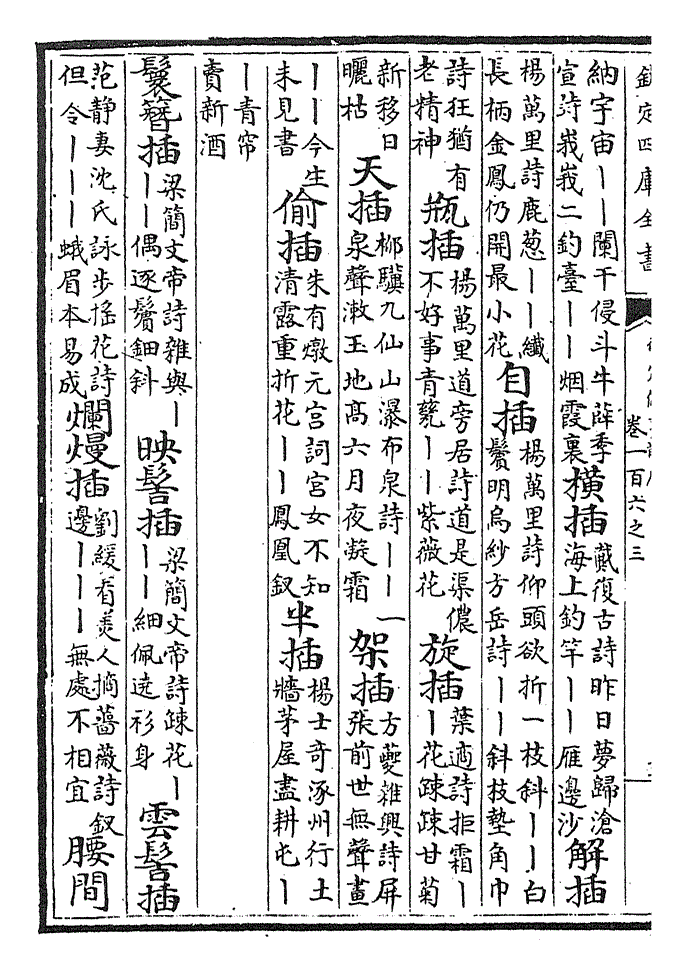 欽定四庫全書
卷一百六之三
納宇宙丨丨闌干侵斗牛薛季
宣詩峩峩二釣臺丨丨烟霞裏
橫插
戴復古詩昨日夢歸滄
海上釣竿丨丨雁邊沙
解插
楊萬里詩鹿葱丨丨纖
長柄金鳳仍開最小花
自插
楊萬里詩仰頭欲折一枝斜丨丨白
鬢明烏紗方岳詩丨丨斜枝墊角巾
詩狂猶有
老精神
瓶插
楊萬里道旁居詩道是渠儂
不好事青甆丨丨紫薇花
旋插
葉適詩拒霜丨
丨花疎疎甘菊
新移日
曬枯
天插
柳驥九仙山瀑布泉詩丨丨一
泉聲潄玉地高六月夜凝霜
架插
方夔雜興詩屏
張前世無聲畫
丨丨今生
未見書
偷插
朱有燉元宮詞宮女不知
清露重折花丨丨鳳凰釵
半插
楊士奇涿州行土
牆茅屋盡耕屯丨
丨青帘
賣新酒
鬟簪插
梁簡文帝詩雜與丨
丨丨偶逐鬢鈿斜
映髻插
梁簡文帝詩疎花丨
丨丨細佩遶衫身
雲髻插
范静妻沈氏詠步摇花詩
但令丨丨丨蛾眉本易成
爛熳插
劉緩看美人摘薔薇詩釵
邊丨丨丨無處不相宜
腰間